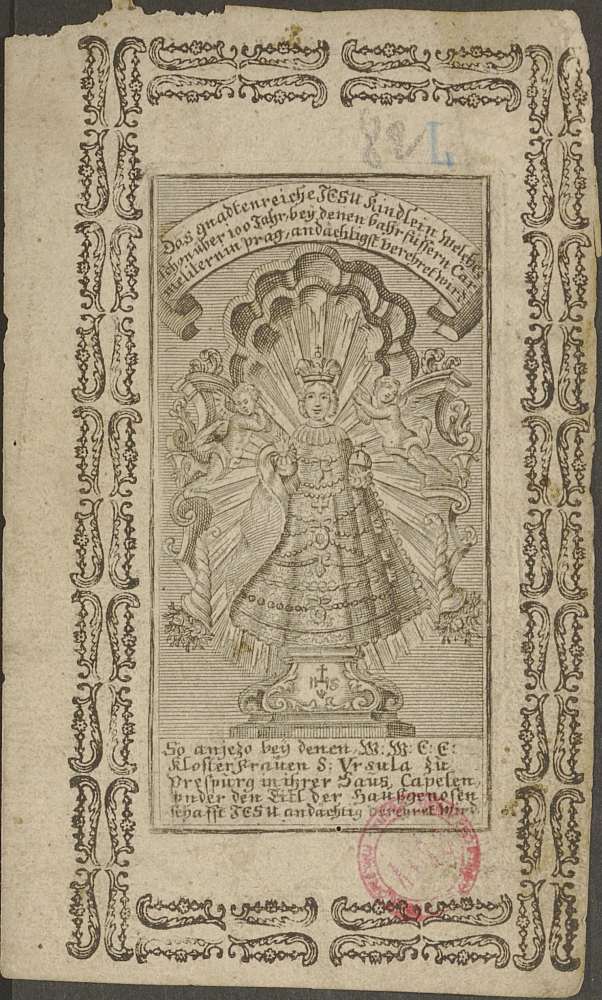 Das gnadtenreiche JESU Kindlein welches
schon über 100 Jahr, bey denen bahrfüssern Car
melitern in prag, andächtigst verehret wird
IHS
So anjezo bey denen, W: W: E: E:
Kloster Frauen S: Vrsula zu
Prespurg in ihrer Haus Capelen,
vnder den Titl der Haußgenosen
schafft JESU andächtig verehret wird